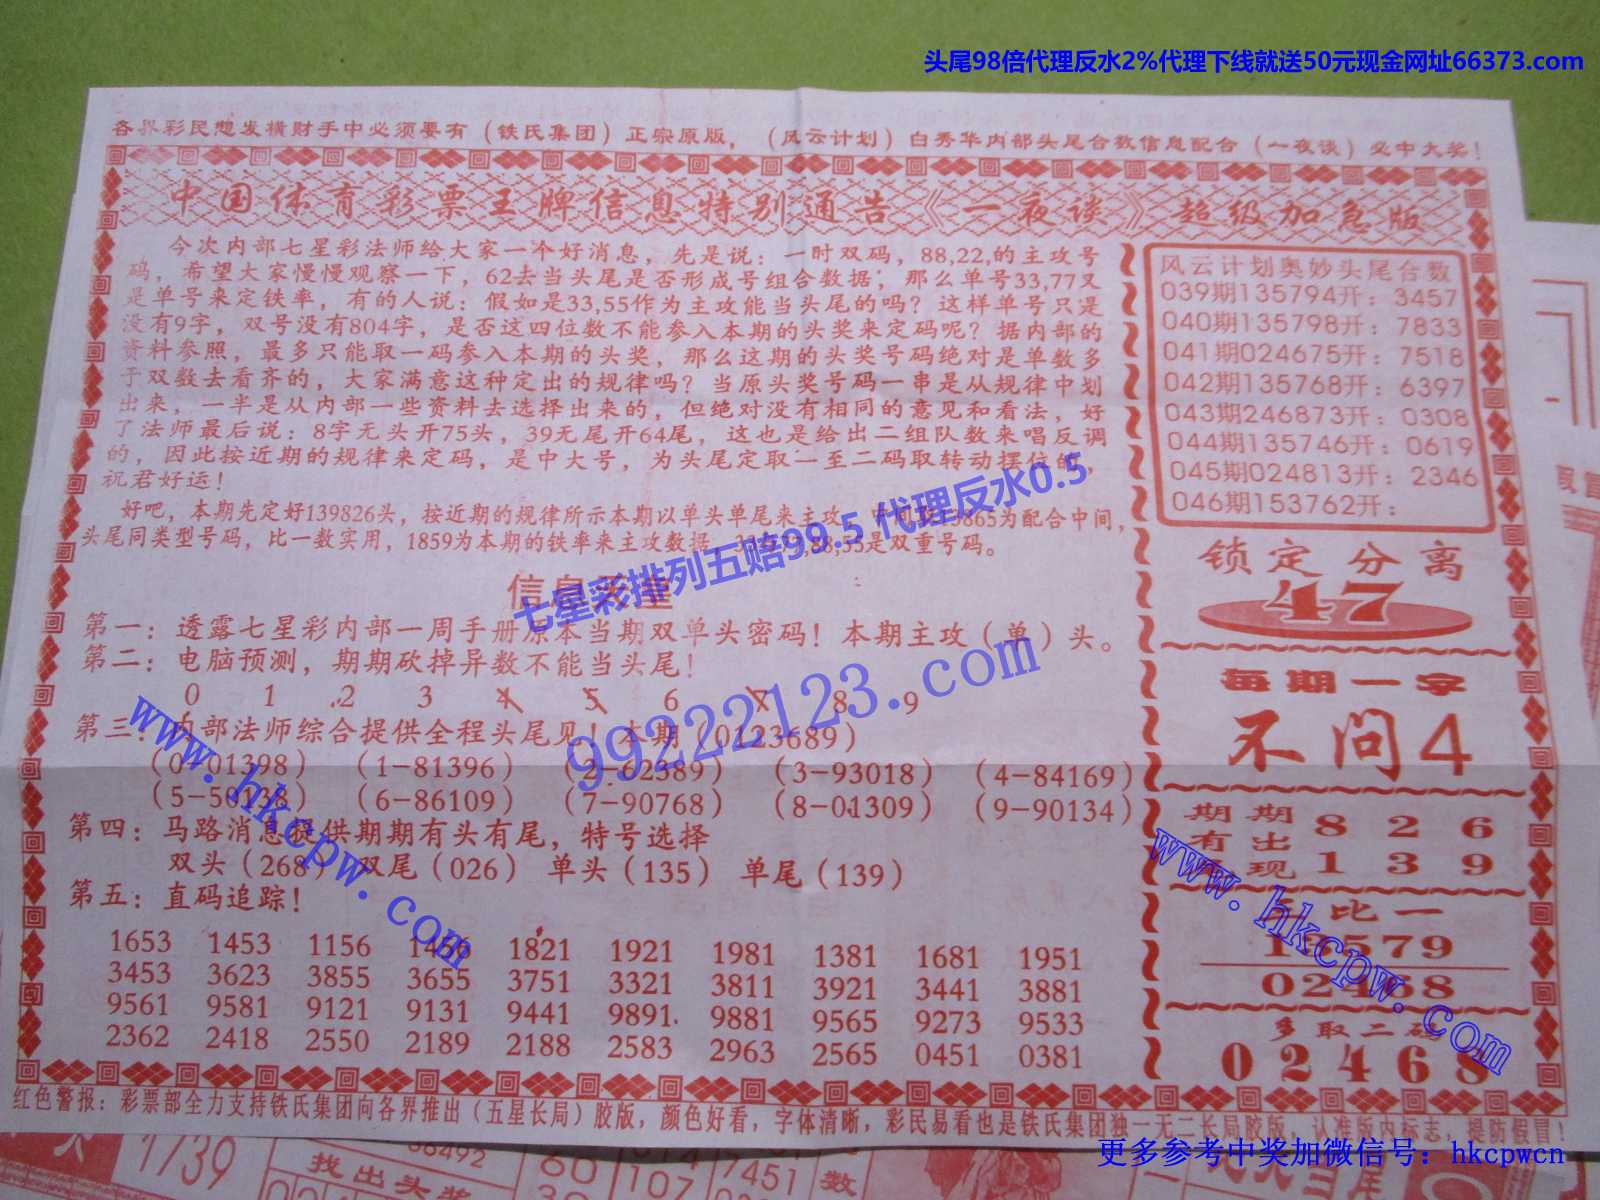 头尾98倍代理反水2%代理下线就送50元现金网址66373.com
各界彩民想发横财手中必须要有（铁氏集团）正宗原版，（风云计划）白秀华内部头尾台数信息配合（一夜谈）必中大奖！
中国体育彩票王牌信息特别通告《一夜谈》超级加急版
今次内部七星彩法师给大家一个好消息，先是说：一时双码，88,22,的主攻号
码，希望大家慢慢观察一下，62去当头尾是否形成号组合数据；那么单号33,77又
是单号来定铁率，有的人说：假如是33,55作为主攻能当头尾的吗？这样单号只是
没有9字，双号没有804字，是否这四位数不能参入本期的头奖来定码呢？据内部的
资料参照，最多只能取一码参入本期的头奖，那么这期的头奖号码绝对是单数多
于双数去看齐的，大家满意这种定出的规律吗？当原头奖号码一串是从规律中划
出来，一半是从内部一些资料去选择出来的，但绝对没有相同的意见和看法，好
了法师最后说：8字无头开75头，39无尾开64尾，这也是给出二组队数来唱反调
的，因此按近期的规律来定码，是中大号，为头尾定取一至二码取转动摆位的，
祝君好运！
好吧，本期先定好139826头，按近期的规律所示本期以单头单尾来主攻，中间 3865为配合中间，
头尾同类型号码，比一数实用，1859为本期的铁率来主攻数据， 88,55是双重号码。
七星彩排列五赔99.5 代理反水0.5
信息
第一：透露七星彩内部一周手册原本当期双单头密码！本期主攻（单）头。
第二：电脑预测，期期砍掉异数不能当头尾！
0 1 2 3 4 5 6 7 8 9
99222123.com
第三：内部法师综合提供全程头尾见！本期（0123689）
（0-01398）（1-81396）（2-62389）（3-93018）（4-84169）
（5-50136）（6-86109）（7-90768）（8-01309）（9-90134）
第四：马路消息提供期期有头有尾，特号选择
双头（268）双尾（026）单头（135）单尾（139）
第五：直码追踪！
1653 1453 1156 1456 1821 1921 1981 1381 1681 1951
3453 3623 3855 3655 3751 3321 3811 3921 3441 3881
9561 9581 9121 9131 9441 9891 9881 9565 9273 9533
2362 2418 2550 2189 2188 2583 2963 2565 0451 0381
www.hkcpw.com
风云计划奥妙头尾台数
039期135794开：3457
040期135798开：7833
041期024675开：7518
042期135768开：6397
043期246873开：0308
044期135746开：0619
045期024813开：2346
046期153762开：
锁定分离
47
每期一字
不问4
期期 8 2 6
有出
现 1 3 9
比一
13579
02468
多取二码
02468
www.hkcpw.com
红色警报：彩票部全力支持铁氏集团向各界推出（五星长局）胶版，颜色好看，字体清晰，彩民易看也是铁氏集团独一无二长局胶版，认准版内标志，提防假冒！
更多参考中奖加微信号：hkcpwcn
1739
找出头奖
7451
107
数